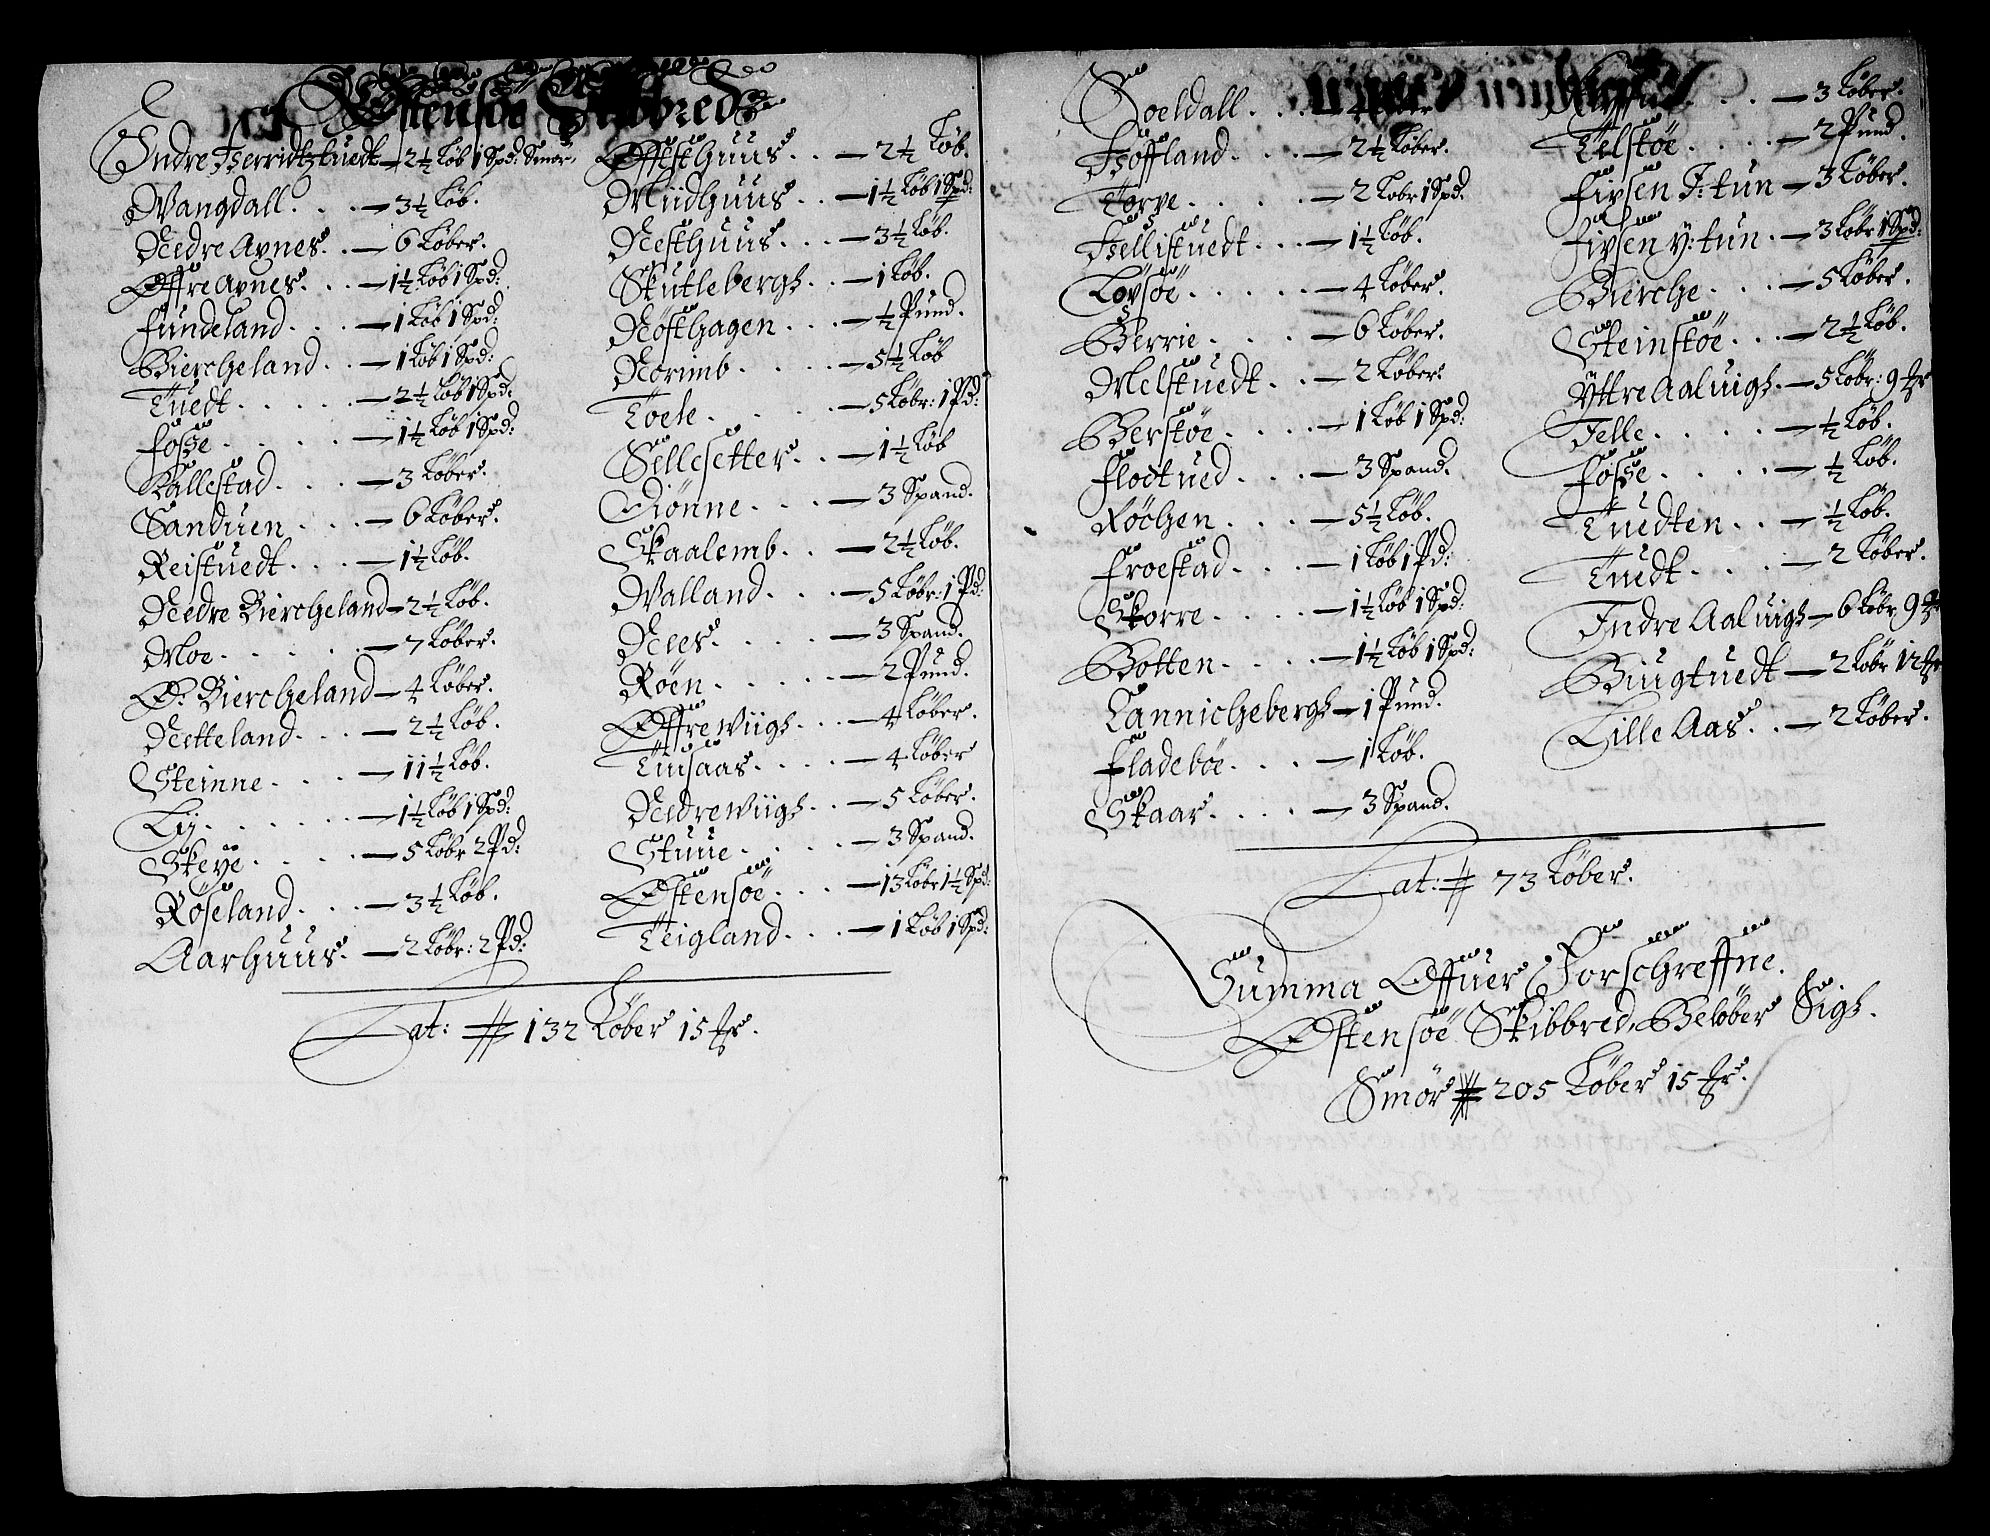 Østensøe Skibbred
Indre Herridtztuedt – 2½ Løb 1 Spd: Smør.
Wangdall . . . – 3½ Løb.
Nedre Axnes . . – 6 Løber.
Øffre Axnes . . . – 1½ Løb 1 Spd:
Fundeland . . . – 1 Løb 1 Spd:
Biercheland . . – 1 Løb 1 Spd:
Tuedt . . . . . – 2½ Løb 1 Spd:
Fosse . . . . . – 1½ Løb 1 Spd:
Kallestad . . . – 3 Løber.
Sanduen . . . – 6 Løber.
Reistuedt . . . – 1½ Løb.
Nedre Biercheland – 2½ Løb.
Moe . . . . . – 7 Løber.
Ø. Biercheland – 4 Løber.
Netteland . . . – 2½ Løb.
Steinne . . . . – 11½ Løb.
Lij . . . . . . – 1½ Løb 1 Spd:
Skeye . . . . – 5 Løbr 2 Pd:
Røseland . . . – 3½ Løb.
Aarhuus . – 2 Løbr: 2 Pd:
Øffsthuus . . . – 2½ Løb.
Miidhuus . . – 1½ Løb 1 Spd:
Nesthuus . . . – 3½ Løb.
Skutlebergh . . – 1 Løb.
Nösthagen . . . – ½ Pund.
Norimb . . . . – 5½ Løb
Toele . . . . . – 5 Løbr: 1 Pd:
Sellesetter . . – 1½ Løb
Diönne . . . . – 3 Spand.
Skaalemb . . – 2½ Løb.
Walland . . . – 5 Løbr: 1 Pd:
Nees . . . . . – 3 Spand.
Röen . . . . . – 2 Pund.
Øffre Wiigh . . . – 4 Løber.
Tiusaas . . . . – 4 Løber
Nedre Wiigh . . – 5 Løber.
Stuue . . . . . – 3 Spand.
Østensöe . . . – 13 Løbr 1½ Spd:
Teigland . . . – 1 Løb 1 Spd:
Lat: 132 Løber 15 ır.
Soeldall . . .
Höffland . . . – 2½ Løber.
Torpe . . . . . – 2 Løbr 1 Spd.
Hellistuedt . . . – 1½ Løb.
Löpsöe . . . . . – 4 Løber.
Berrie . . . . – 6 Løber.
Melstuedt . . – 2 Løber.
Berstöe . . . . – 1 Løb 1 Spd:
Flodtued . . . – 3 Spand.
Röchen . . . . – 5½ Løb.
Froestad . . . – 1 Løb 1 Pd:
Skorre . . . . – 1½ Løb 1 Spd:
Botten . . . . – 1½ Løb 1 Spd:
Lannichebergh – 1 Pund.
Fladeböe . . . – 1 Løb.
Skaar . . . . – 3 Spand.
– 3 Løber.
Telstöe . . . . – 2 Pund.
Fixsen J: tun – 3 Løber.
Fixsen Y: tun . – 3 Løbr 1 Spd:
Bierche . . . – 5 Løber.
Steinstöe . . . – 2½ Løb.
Yttre Aaluigh . – 5 Løbr: 9 ır
Telle . . . . . – ½ Løb.
Fosse . . . . – ½ Løb.
Tuedten . . – ½ Løb.
Tuedt . . . . – 2 Løber.
Indre Aaluigh – 6 Løbr 9 ır
Biugtuedt – 2 Løbr 12 ır
Lille Aas . . – 2 Løber.
Lat: 73 Løber.
Summa Offuer Forschreffne.
Østensöe Skibbred, Beløber Sigh.
Smør 205 Løber 15 ır.